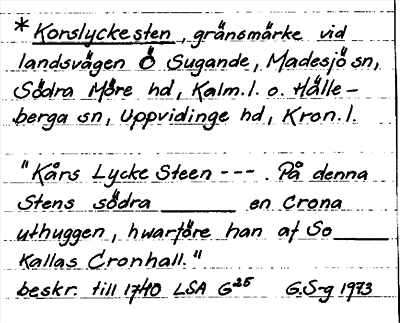 * Korslyckesten, gränsmärke vid
landsvägen Ö Sugande, Madesjö sn,
Södra Möre hd, Kalm. l. o. Hälle-
berga sn, Uppvidinge hd, Kron. l.
"Kårs Lycke Steen --- . På denna
Stens södra ______ en Crona
uthuggen, hwarföre han af So ____
Kallas Cronhall."
beskr. till 1740 LSA G25 G.S-g 1973